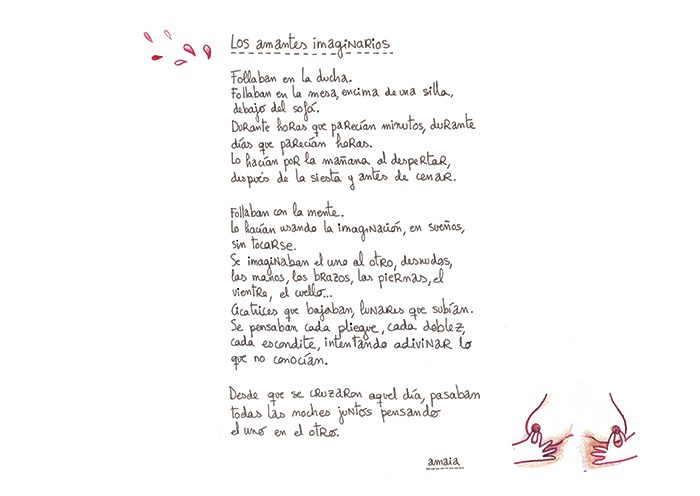 Los amantes imaginarios
Follaban en la ducha.
Follaban en la mesa, encima de una silla,
debajo del sofá.
Durante horas que parecían minutos, durante
días que parecían horas.
Lo hacían por la mañana al despertar,
después de la siesta y antes de cenar.
Follaban con la mente.
Lo hacían usando la imaginación, en sueños,
sin tocarse.
Se imaginaban el uno al otro, desnudos,
las manos, los brazos, las piernas, el
vientre, el cuello...
Cicatrices que bajaban, lunares que subían.
Se pensaban cada pliegue, cada doblez,
cada escondite, intentando adivinar lo
que no conocían.
Desde que se cruzaron aquel día, pasaban
todas las noches juntos pensando
el uno en el otro.
amaia